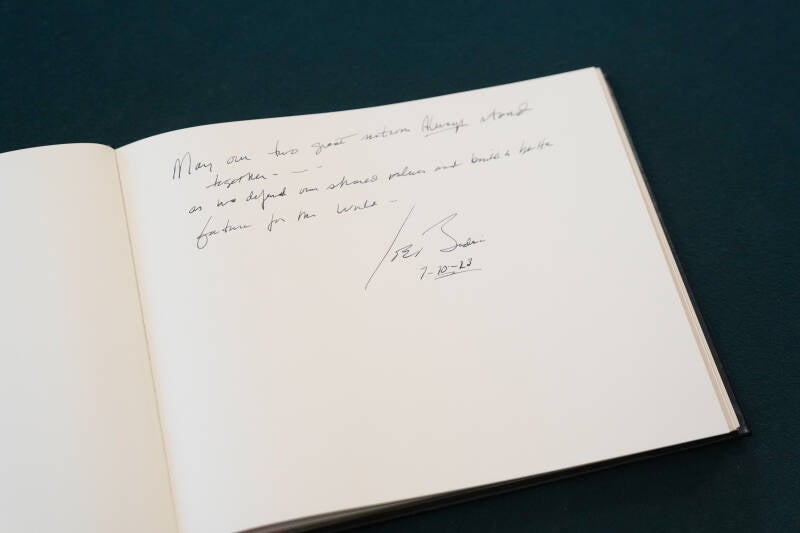 May our two great nations Always stand
together - - -
as we defend our shared values and build a better
future for the World -
Joe Biden
7-10-23